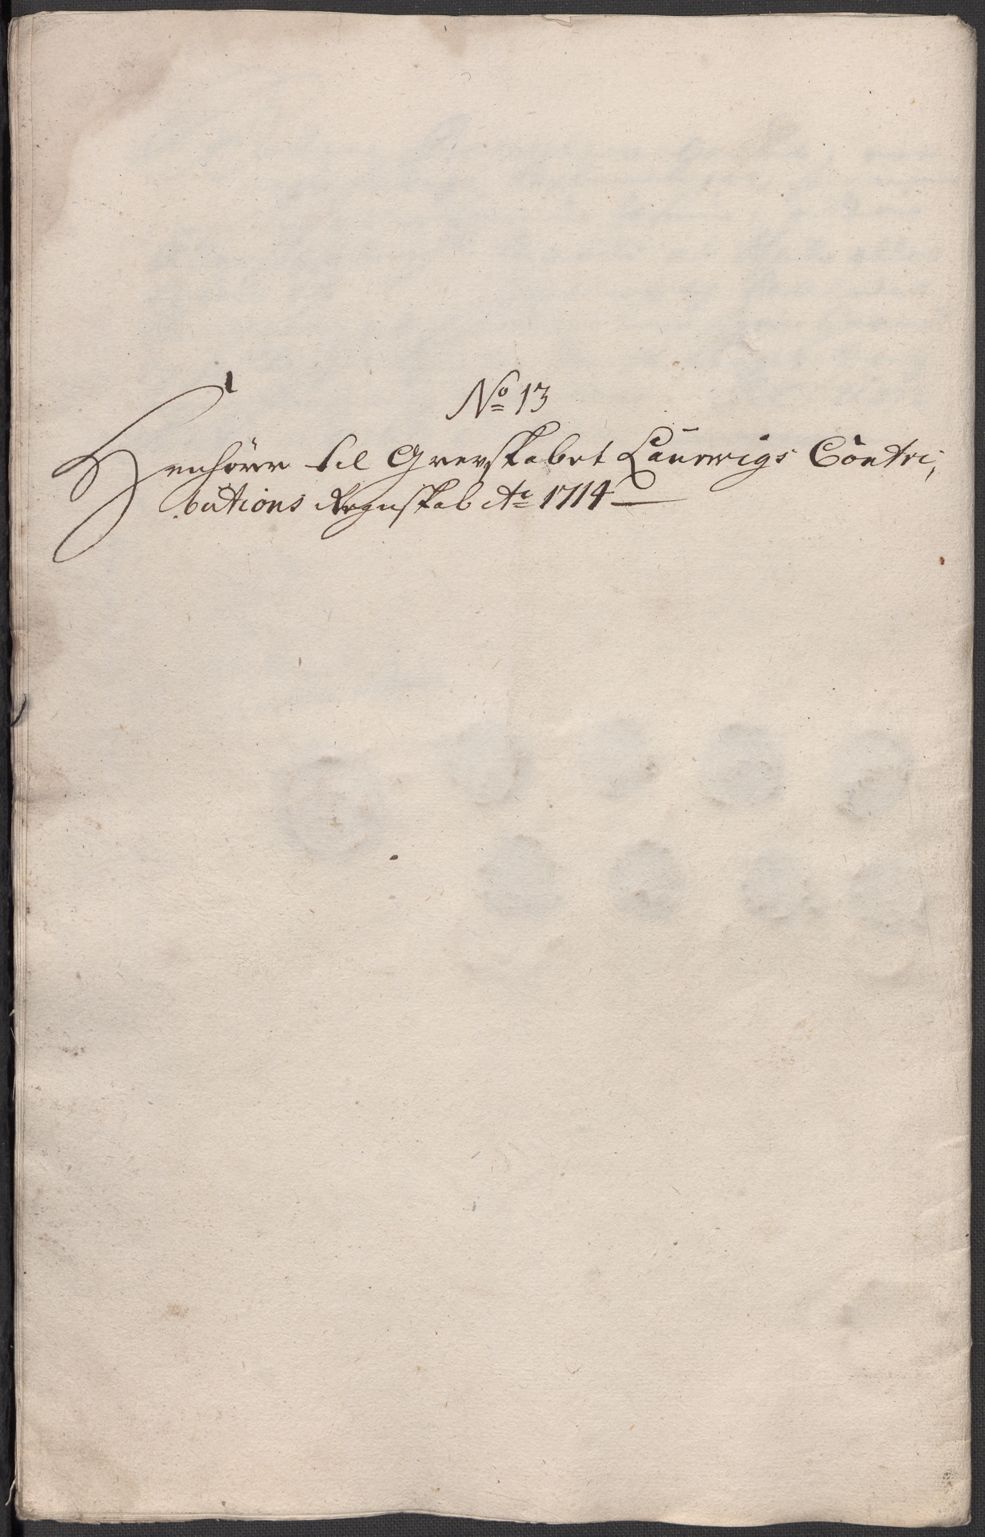 No 13
Henhörer til Grevskabet Laurwigs Contri,
butions Regnskab Ao 1714